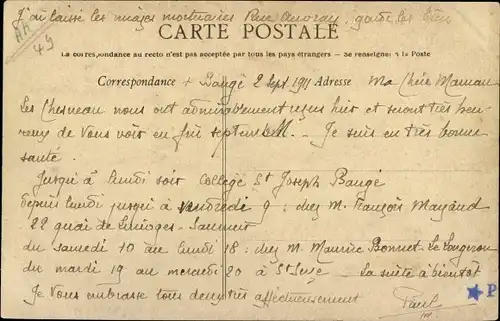 J'ai laissé les images mortuaires Père garde les bien
AA
49
CARTE POSTALE
La correspondance au recto n'est pas acceptée par tous les pays étrangers — Se renseigner à la Poste
Correspondance + Baugé 2 Sept. 1911 Adresse Ma Chère Maman
Les Chesneau nous ont admirablement reçus hier et seront très heu-
reux de vous voir en fin septembre. - Je suis en très bonne
santé.
Jusqu'à lundi soir Collège St Joseph Baugé
depuis lundi jusqu'à vendredi 9 : chez M. François Mayaud
22 quai de Limoges - Saumur
du samedi 10 au lundi 18 : chez M. Maurice Bonnet. Le Longeron
du mardi 19 au mercredi 20 à St - La suite à bientôt
Je vous embrasse tous deux très affectueusement
Paul
P